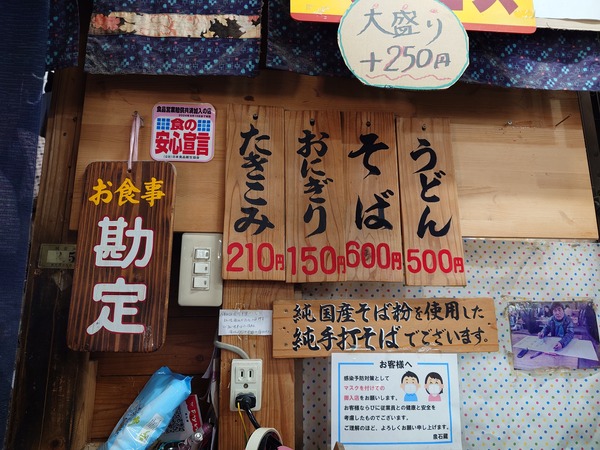 大盛り
+250円
食の
安心宣言
お食事
勘定
たきこみ
210円
おにぎり
150円
そば
600円
うどん
500円
純国産そば粉を使用した
純手打そばでございます。
お客様へ
感染予防対策として
マスクを付けての
御入店をお願いします。
お客様ならびに従業員との健康と安全を
考慮したものでございます。
ご理解のほど、よろしくお願い申し上げます。